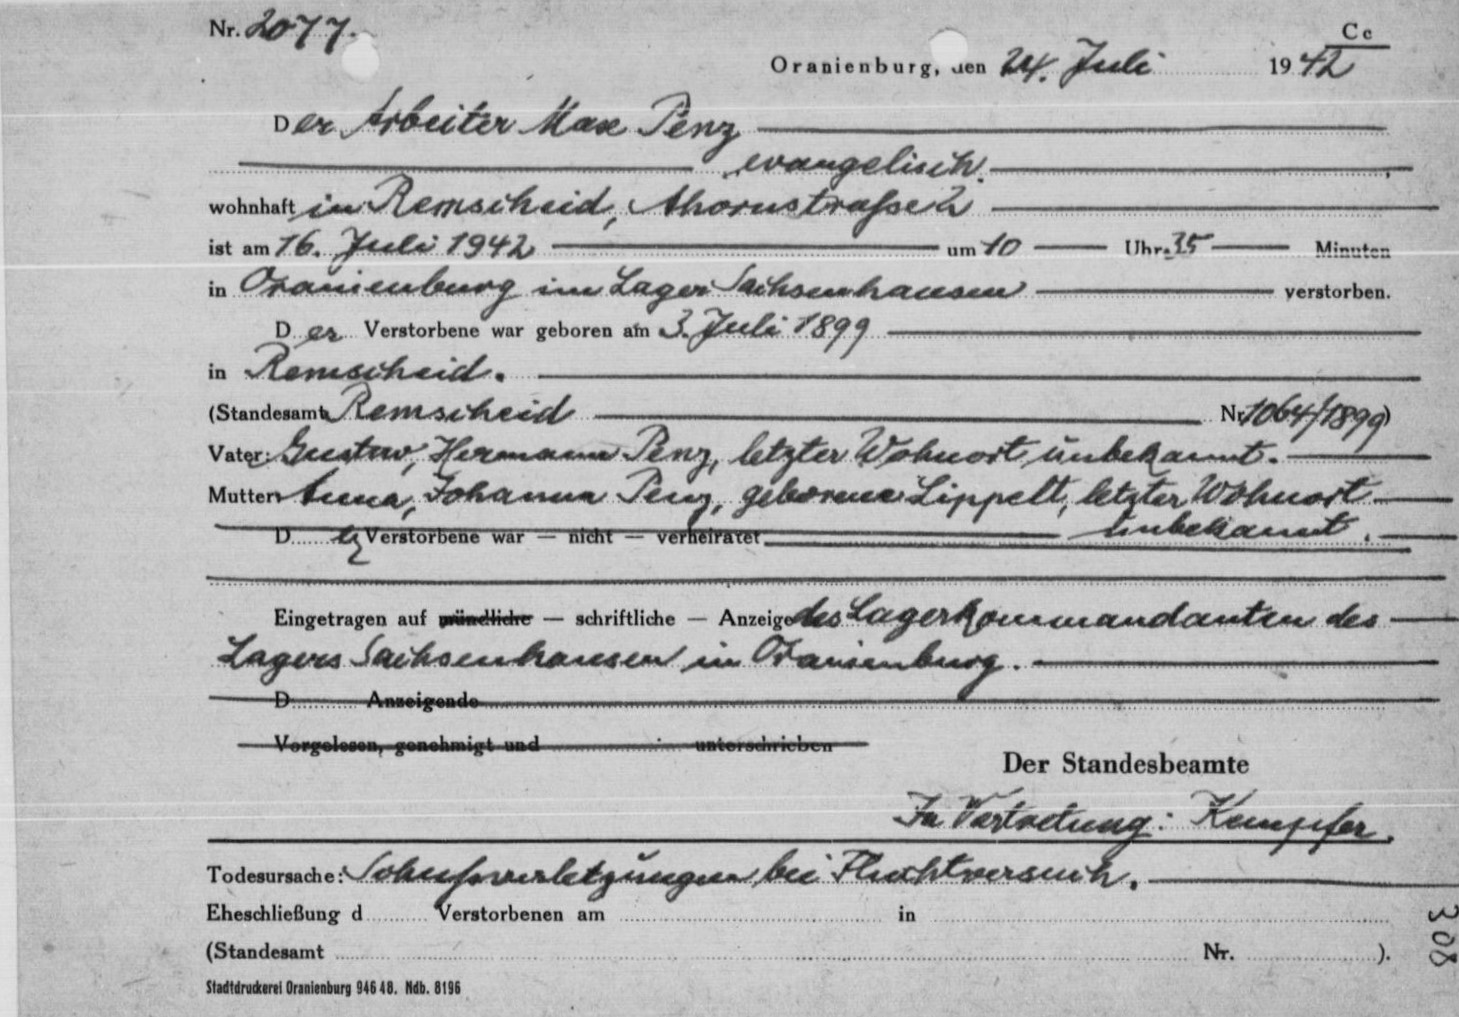 Nr. 2077.
Cc
Oranienburg, den 24. Juli 1942
Der Arbeiter Max Penz
evangelisch.
wohnhaft in Remscheid, Ahornstraße 2
ist am 16. Juli 1942 um 10 Uhr 35 Minuten
in Oranienburg im Lager Sachsenhausen verstorben.
Der Verstorbene war geboren am 3. Juli 1899
in Remscheid.
(Standesamt Remscheid Nr. 1064/1899)
Vater: Gustav, Hermann Penz, letzter Wohnort unbekannt.
Mutter: Anna, Johanna Penz, geborene Lippelt, letzter Wohnort
unbekannt.
D er Verstorbene war — nicht — verheiratet
Eingetragen auf mündliche — schriftliche — Anzeige des Lagerkommandanten des
Lagers Sachsenhausen in Oranienburg.
D Anzeigende
Vorgelesen, genehmigt und unterschrieben
Der Standesbeamte
In Vertretung: Kempfer.
Todesursache: Schußverletzungen bei Fluchtversuch.
Eheschließung d Verstorbenen am in
(Standesamt Nr. ).
Stadtdruckerei Oranienburg 946 48. Ndb. 8196
308